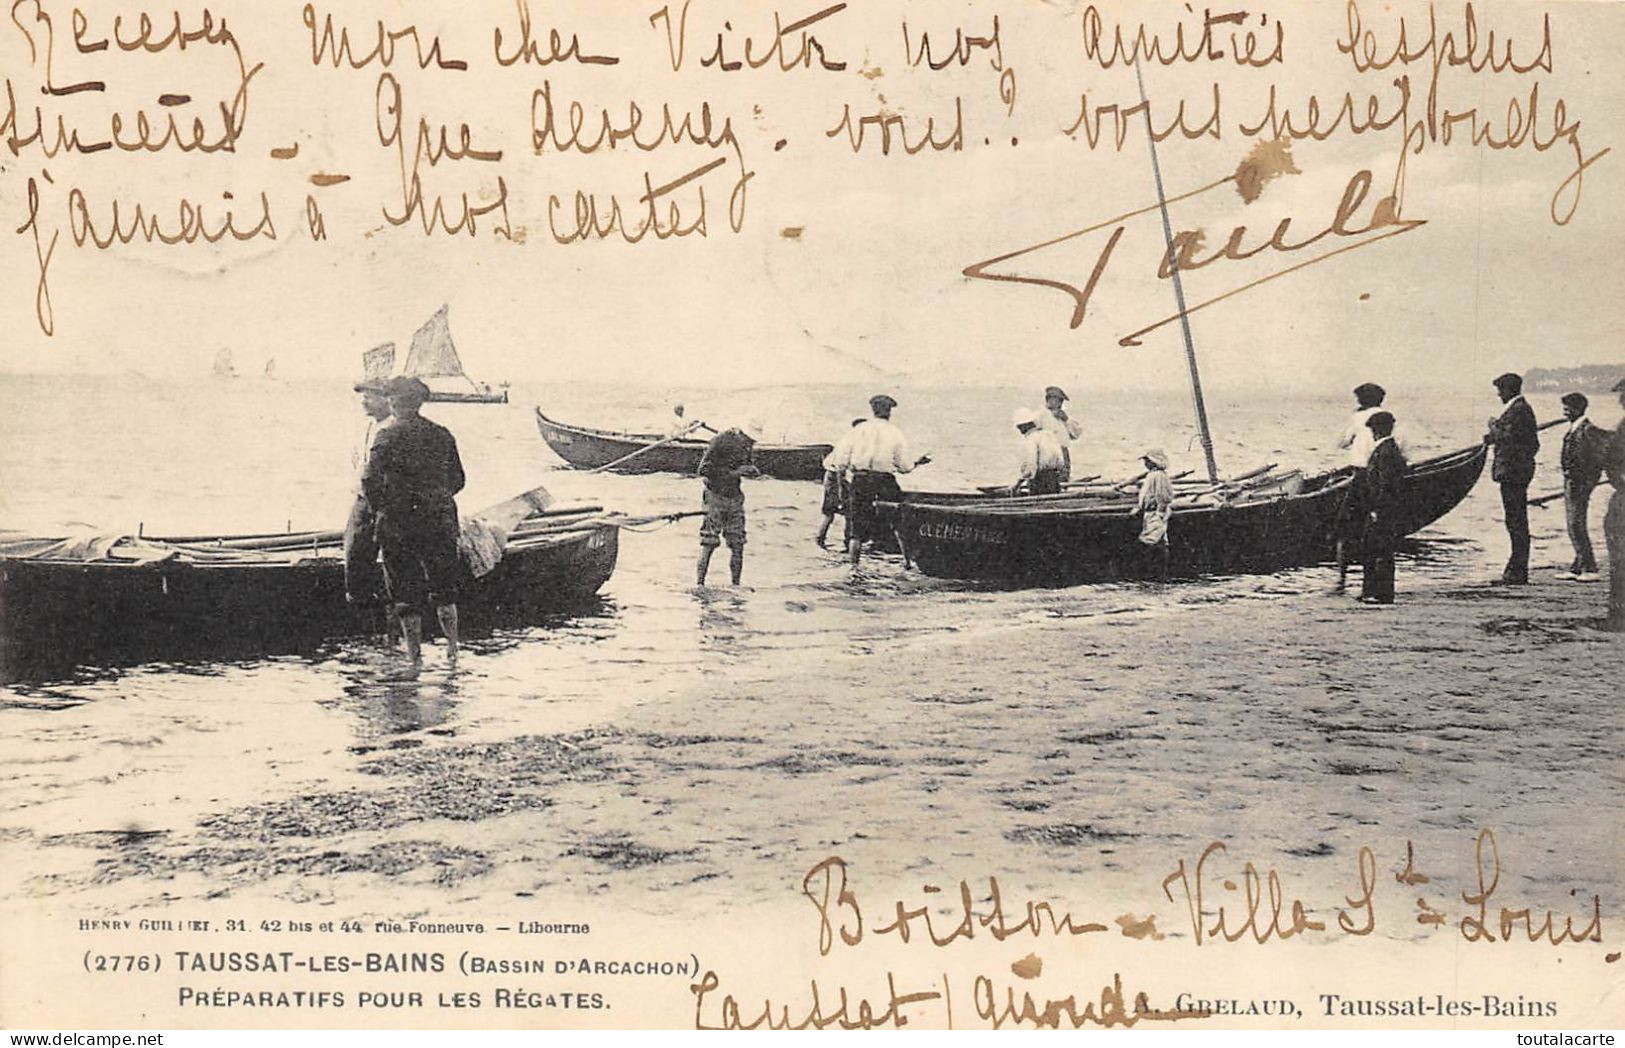 Recevez mon cher Victor nos amitiés les plus
sincères - Que devenez-vous ? vous ne répondez
jamais à nos cartes
Paula
CLEMENTINE
Boisson - Villa St-Louis.
Taussat / Gironde
HENRY GUILLIER, 31, 42 bis et 44 rue Fonneuve - Libourne
(2776) TAUSSAT-LES-BAINS (BASSIN D'ARCACHON)
PRÉPARATIFS POUR LES RÉGATES.
A. GRELAUD, Taussat-les-Bains
delcampe.net
toutalacarte